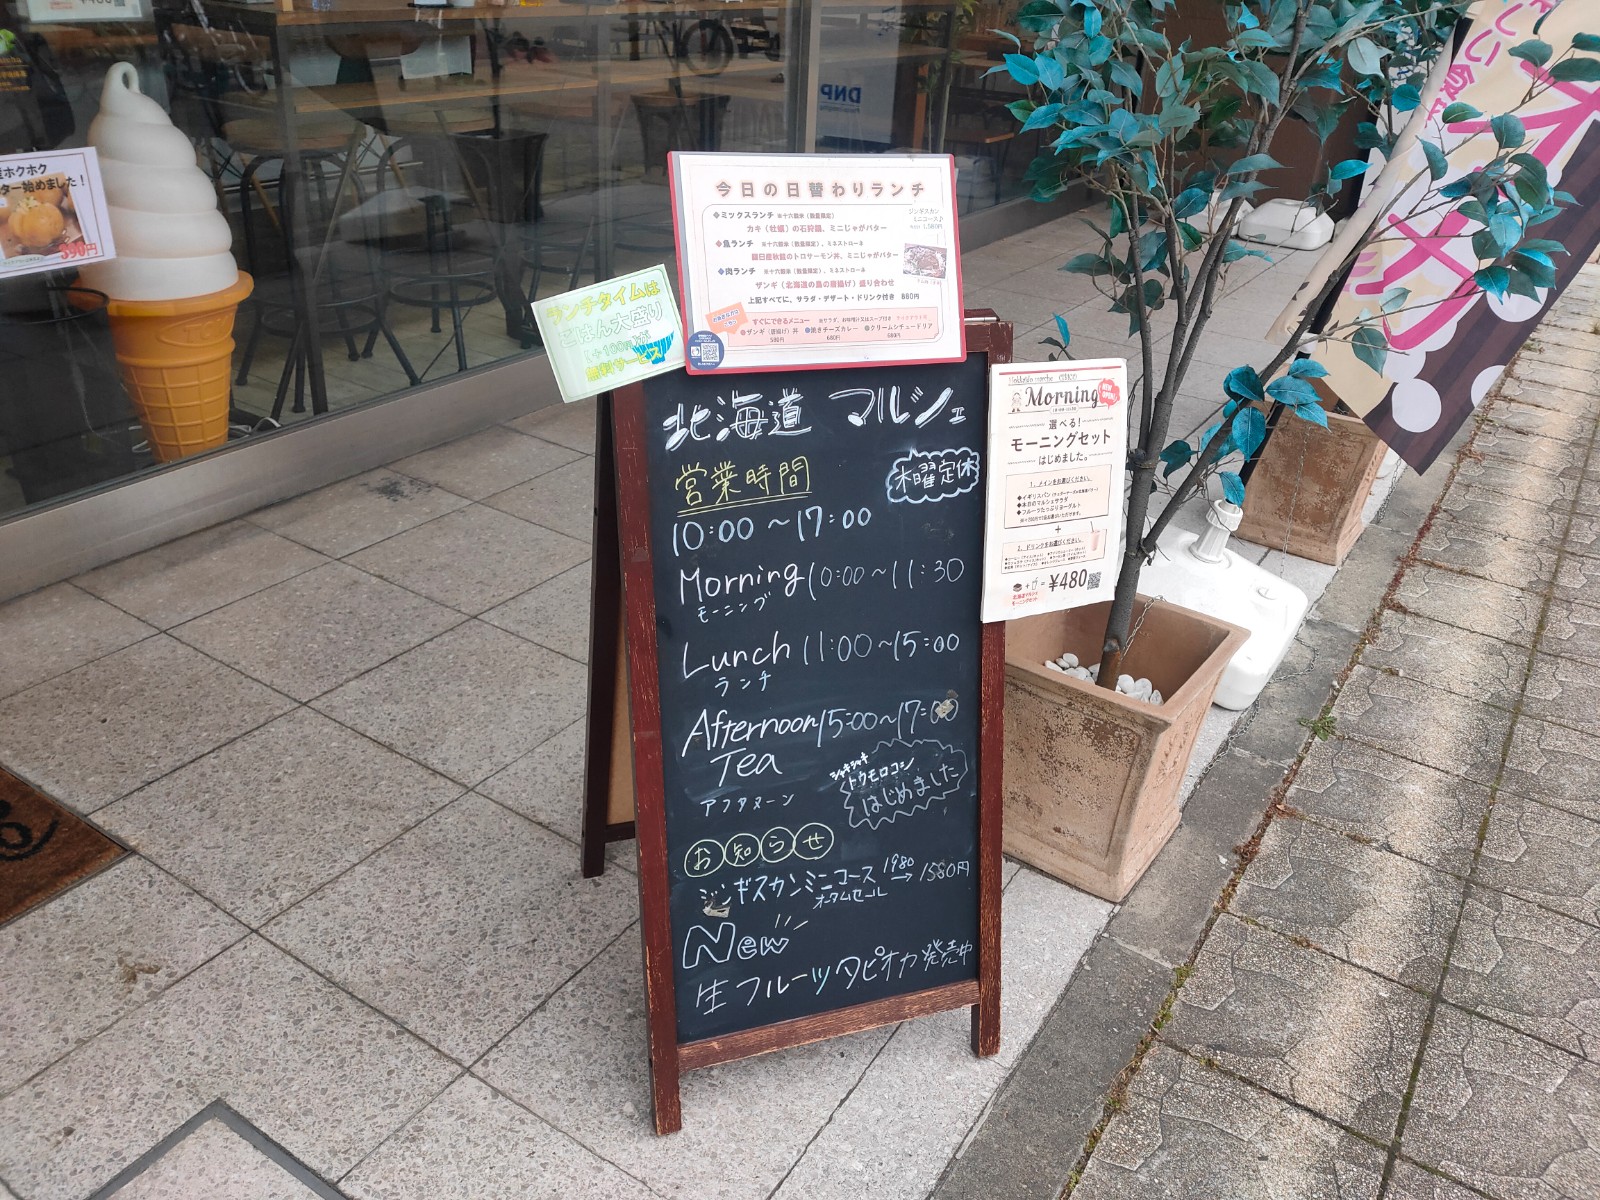 ホクホク
ター始めました!
390円
DNP
今日の日替わりランチ
◆ミックスランチ ※十六穀米(数量限定)
カキ(牡蠣)の石狩鍋、ミニじゃがバター
◆魚ランチ ※十六穀米(数量限定)、ミネストローネ
トロサーモン丼、ミニじゃがバター
◆肉ランチ ※十六穀米(数量限定)、ミネストローネ
ザンギ(北海道の鳥の唐揚げ)盛り合わせ
上記すべてに、サラダ・デザート・ドリンク付き 880円
ジンギスカン
ミニコース♪
1,580円
すぐにできるメニュー
●ザンギ(唐揚げ)丼 ●焼きチーズカレー ●クリームシチュードリア
580円 680円 680円
ランチタイムは
ごはん大盛り
(+100円)が
無料サービス
北海道 マルシェ
営業時間
木曜定休
10:00 ~ 17:00
Morning 10:00~11:30
モーニング
Lunch 11:00~15:00
ランチ
Afternoon 15:00~17:00
Tea
アフタヌーン
シャキシャキ
トウモロコシ
はじめました
お知らせ
ジンギスカンミニコース 1980→1580円
オータムセール
New
生フルーツタピオカ発売中
Hokkaido marche
Morning
NEW OPEN!
選べる!
モーニングセット
はじめました。
1、メインをお選びください。
◆イギリスパン
◆本日のマルシェサラダ
◆フルーツたっぷりヨーグルト
+
2、ドリンクをお選びください。
+ = ¥480
北海道マルシェ
モーニングセット